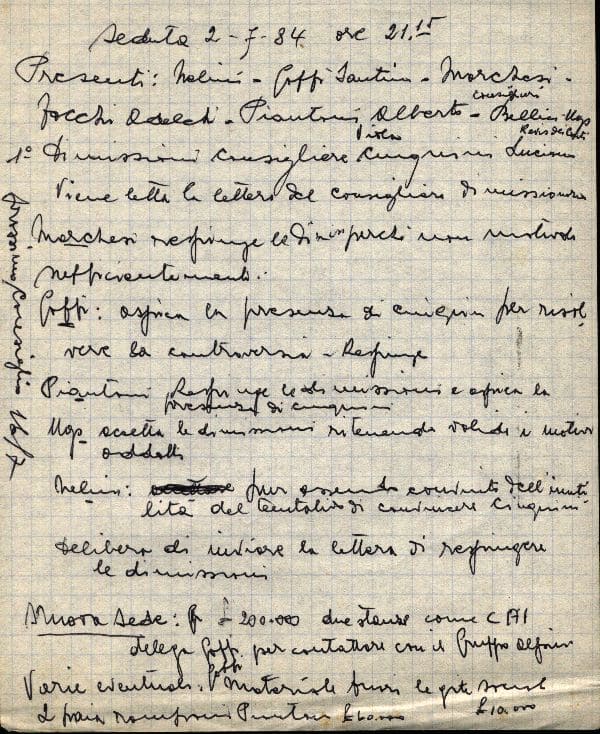 Seduta 2-7-84 ore 21.15
Presenti: Melini - Goffi Santino - Marchesi -
consiglieri
Zecchi Adelchi - Piantoni Alberto - Bellini - Ugo
Viola
Revis dei Conti
1° Dimissioni consigliere Cinquini Luciano
Viene letta la lettera del consigliere dimissionario
Marchesi respinge le dimiss perché non motivate
sufficientemente.
Goffi: auspica la presenza di Cinquini per risol
vere la controversia - Respinge
Piantoni Respinge le dimissioni e auspica la
presenza di Cinquini
Ugo accetta le dimissioni ritenendo validi i motivi
addotti
Melini: pur essendo convinto dell'inuti
lità del tentativo di convincere Cinquini
Delibera di inviare la lettera di respingere
le dimissioni
Nuova Sede: £ 200.000 due stanze come CAI
delega Goffi per contattare con il Gruppo Alpini
Varie eventuali: Goffi Materiale fuori le gite sociali
2 paia ramponi Piantoni £ 60.000 £ 10.000
prossimo Consiglio 16/7